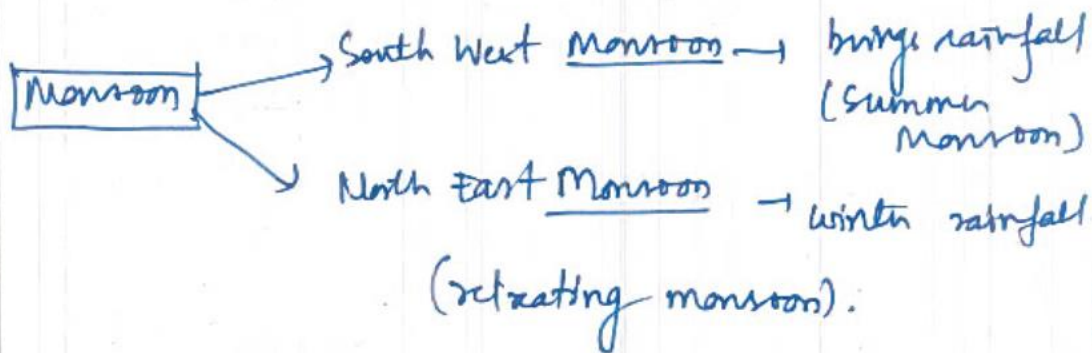 South West Monsoon → brings rainfall
Monsoon
(Summer
Monsoon)
North East Monsoon → winter rainfall
(retreating monsoon).